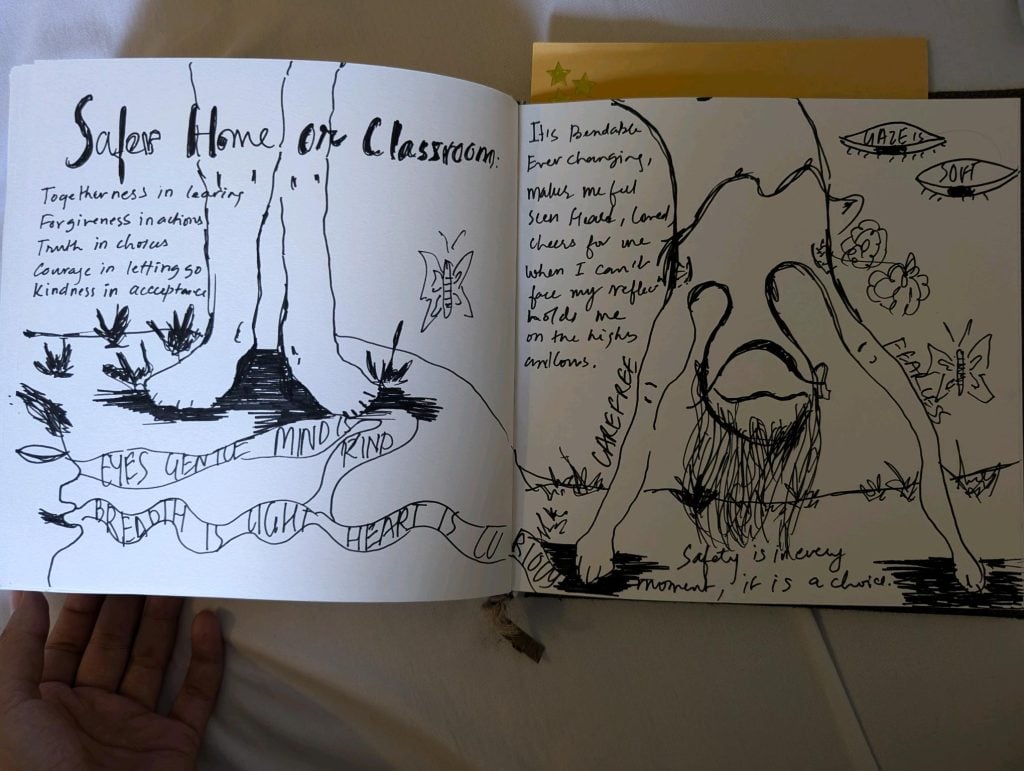 Safer Home or Classroom:
Togetherness in learing
Forgiveness in actions
Truth in choices
Courage in letting go
Kindness in acceptance
EYES GENTLE MIND IS
KIND
BREADTH IS LIGHT HEART IS CU
RIOUS
It is Bendable
Ever changing,
makes me feel
seen Heard, loved
cheers for me
when I can't
face my reflec
holds me
on the highs
and lows.
GAZE IS
SOFT
CAREFREE
FEARLESS
Safety is in every
moment, it is a choice.